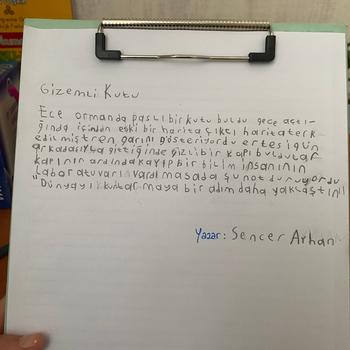 Gizemli Kutu
Ece ormanda paslı bir kutu buldu gece açtı-
ğında içinden eski bir harita çıktı harita terk
edilmiş tren garını gösteriyordu ertesi gün
arkadaşıyla gittiğinde gizli bir kapı buldular
kapının ardında kayıp bir bilim insanının
laboratuvarı vardı masada şu not duruyordu
"Dünyayı kurtarmaya bir adım daha yaklaştın"
Yazar: Sencer Ayhan